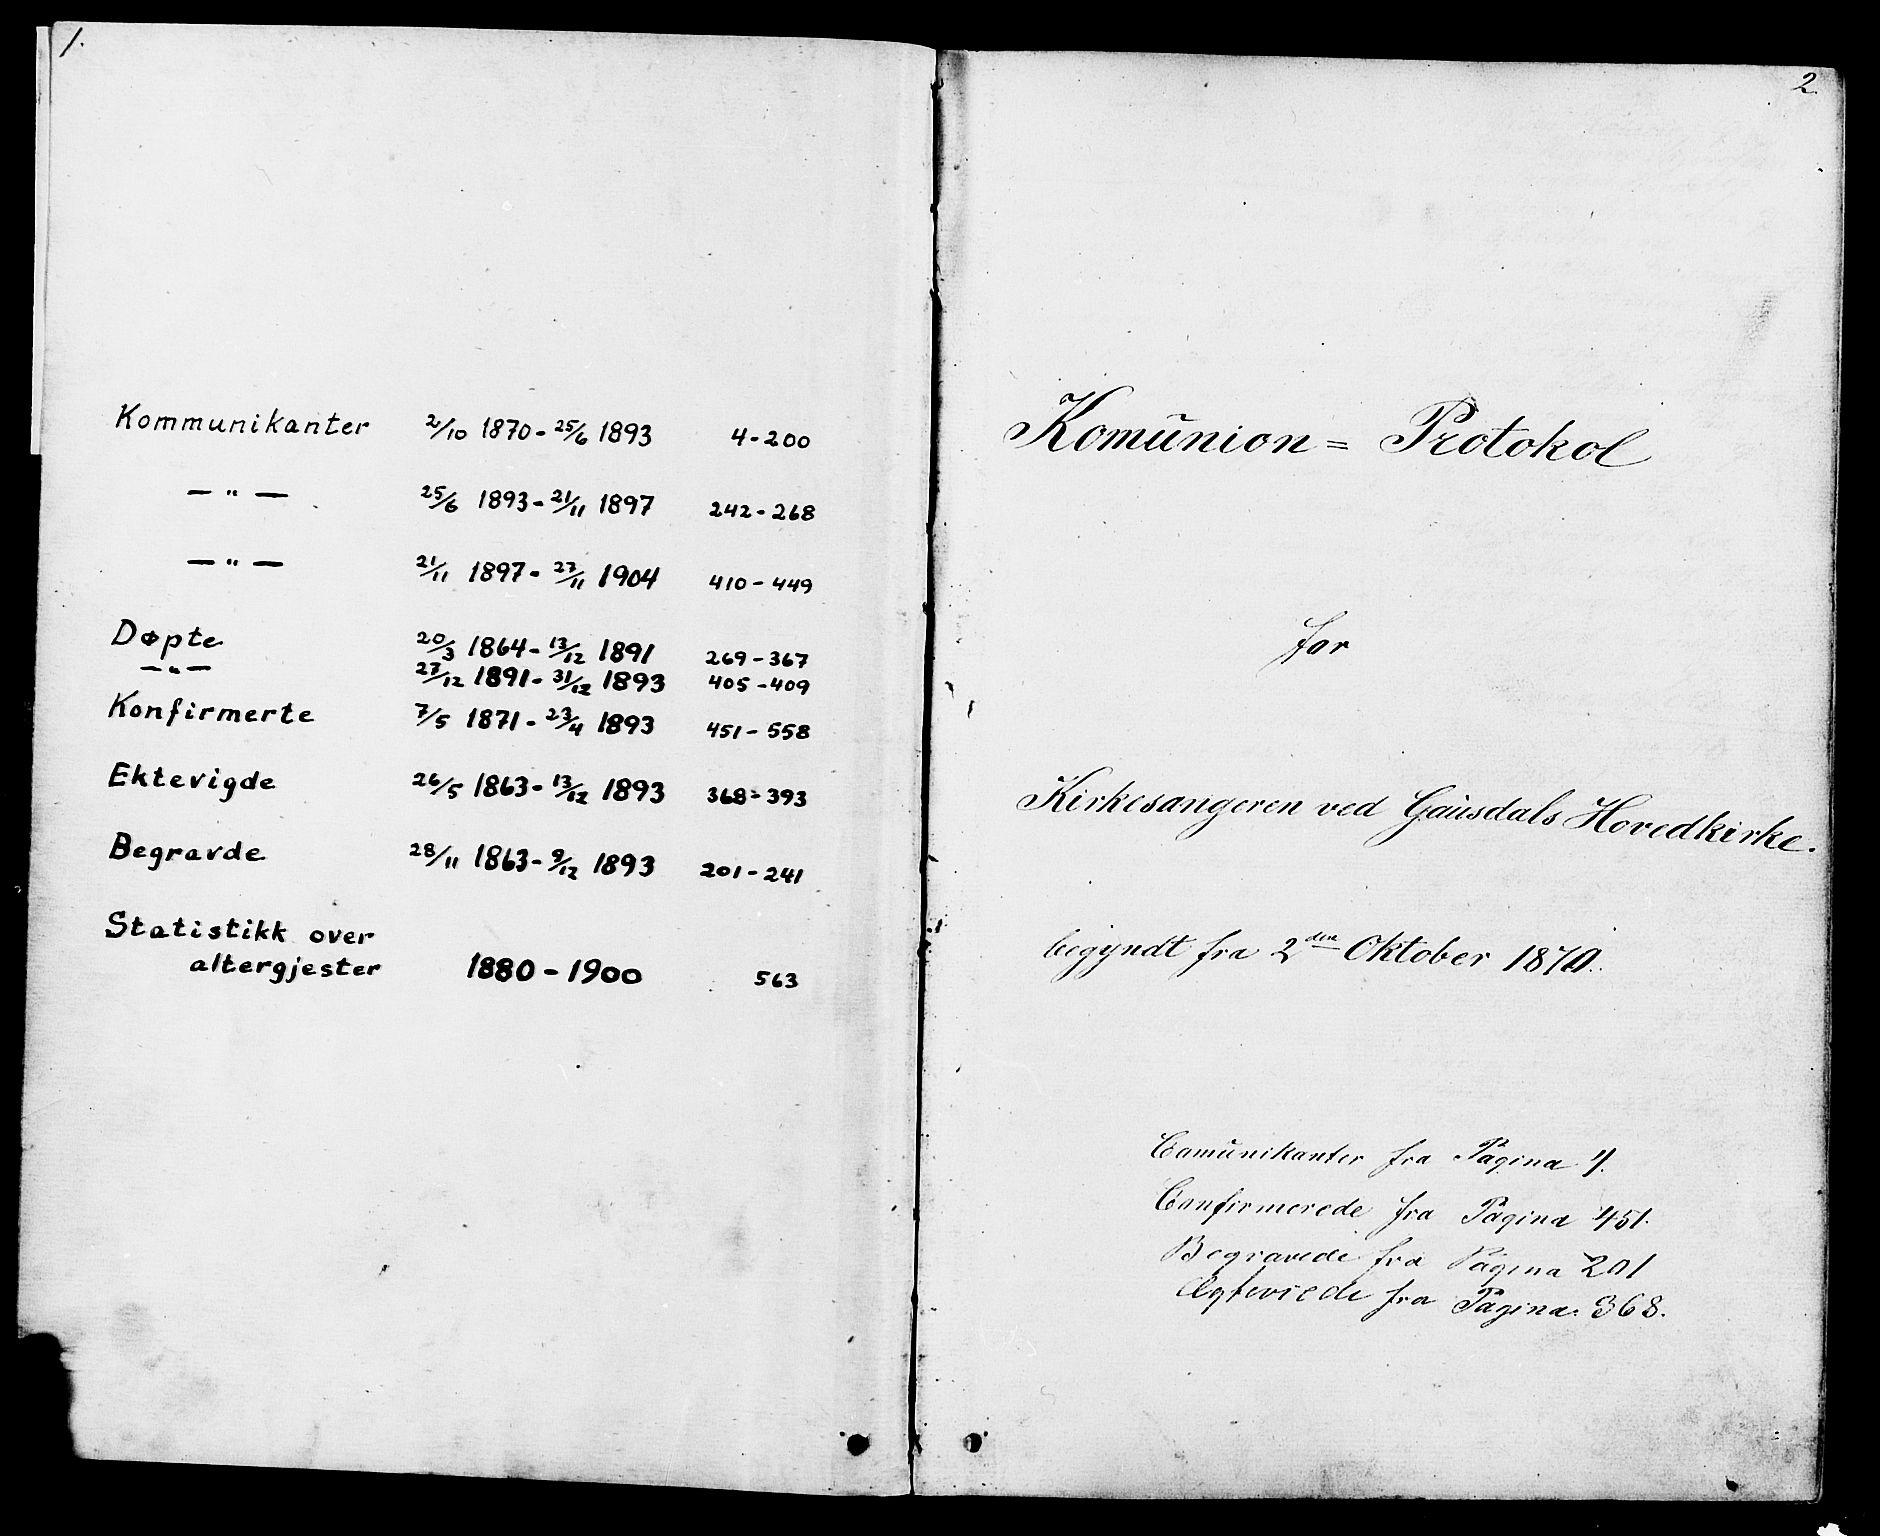 1.
Kommunikanter 2/10 1870 - 25/6 1893 4 - 200
— " — 25/6 1893 - 21/11 1897 242 - 268
— " — 21/11 1897 - 27/11 1904 410 - 449
Døpte 20/3 1864 - 13/12 1891 269 - 367
— " — 27/12 1891 - 31/12 1893 405 - 409
Konfirmerte 7/5 1871 - 23/4 1893 451 - 558
Ektevigde 26/5 1863 - 13/12 1893 368 - 393
Begravde 28/11 1863 - 9/12 1893 201 - 241
Statistikk over
altergjester 1880 - 1900 563
2
Komŭnion = Protokol
for
Kirkesangeren ved Gaŭsdals Hovedkirke.
begyndt fra 2den Oktober 1870.
Comŭnikanter fra Pagina 4.
Confirmerede fra Pagina 451.
Begravede fra Pagina 201
Ægteviede fra Pagina. 368.